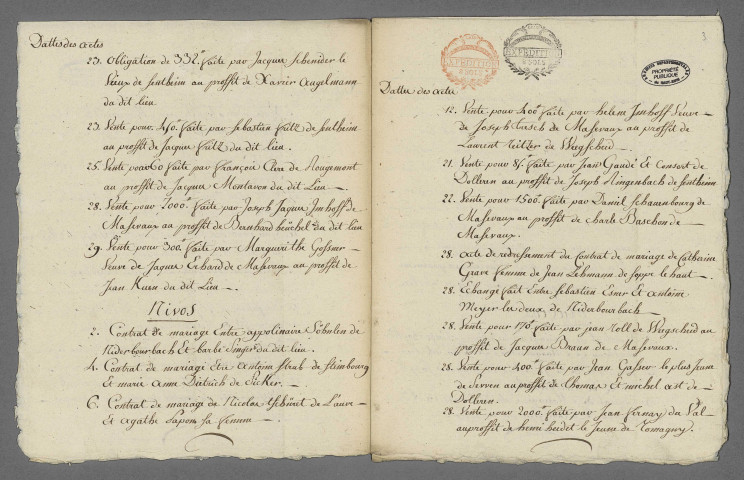 Dattes des actes
23. Obligation de 332.# faite par Jacques Schnider le
Vieux de Sentheim au proffit de Xavier Angelmann
du dit lieu
23. Vente pour 450.# faite par Sebastien Fultz de Sentheim
au proffit de Jacques Fultz du dit lieu.
25. Vente pour 60 faite par François Clere de Rougemont
au proffit de Jacques Montavon du dit Lieu —
28. Vente pour 2000.# faite par Joseph Jaques Imhoff de
Masevaux au proffit de Bernhard beüchel du dit lieu
29. Vente pour 300.# faite par Marguerithe Gossner
Veuve de Jaques Erhard de Masevaux au proffit de
Jean Kuen du dit Lieu —
Nivos
2. Contrat de mariage Entre appolinaire Sohnlen de
Niderbourbach Et barbe Singer du dit lieu.
4. Contrat de mariage Etre Antoine Strab de Steinbourg
Et marie anne Dietrich de Sicker. —
6. Contrat de mariage de Nicolas Tschüret de Lauve —
Et agathe Lapom sa femme —
EXPEDITION
5 SOLS
EXPEDITION
5 SOLS
3
PROPRIÉTÉ
PUBLIQUE
Dattes des actes
12. Vente pour 400# faite par helene Imhoff Veuve —
de Joseph Tirsch de Masevaux au proffit de
Laurent Teitzer de Wegscheid —
21. Vente pour 85.# faite par Jean Gaudé Et Consort de
Dolleren au proffit de Joseph Ringenbach de Sentheim
22. Vente pour 1500.# faite par Daniel Schauenbourg de
Masevaux au proffit de charle Baschon de —
Masevaux.
28. acte de redressement du Contrat de mariage de Catherine
Grave femme de Jean Lehmann de Soppe le haut —
28. Echange fait Entre Sebastien Esner Et antoine
Meyer les deux de Niderbourbach —
28. Vente pour 170.# faite par jean Toll de Wegscheid au
proffit de Jacques Braun de Masevaux.
28. Vente pour 400.# faite par Jean Gasser le plus jeune
de Serven au proffit de Thomas Et michel ast de —
Dolleren.
28. Vente pour 2000.# faite par Jean Vernay du Val
au proffit de henri heidet le Jeune de Romagny.